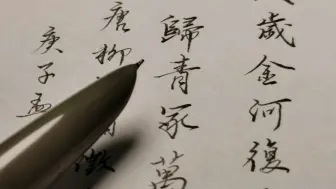 歲金河復
歸青冢萬
唐柳徵
庚子孟